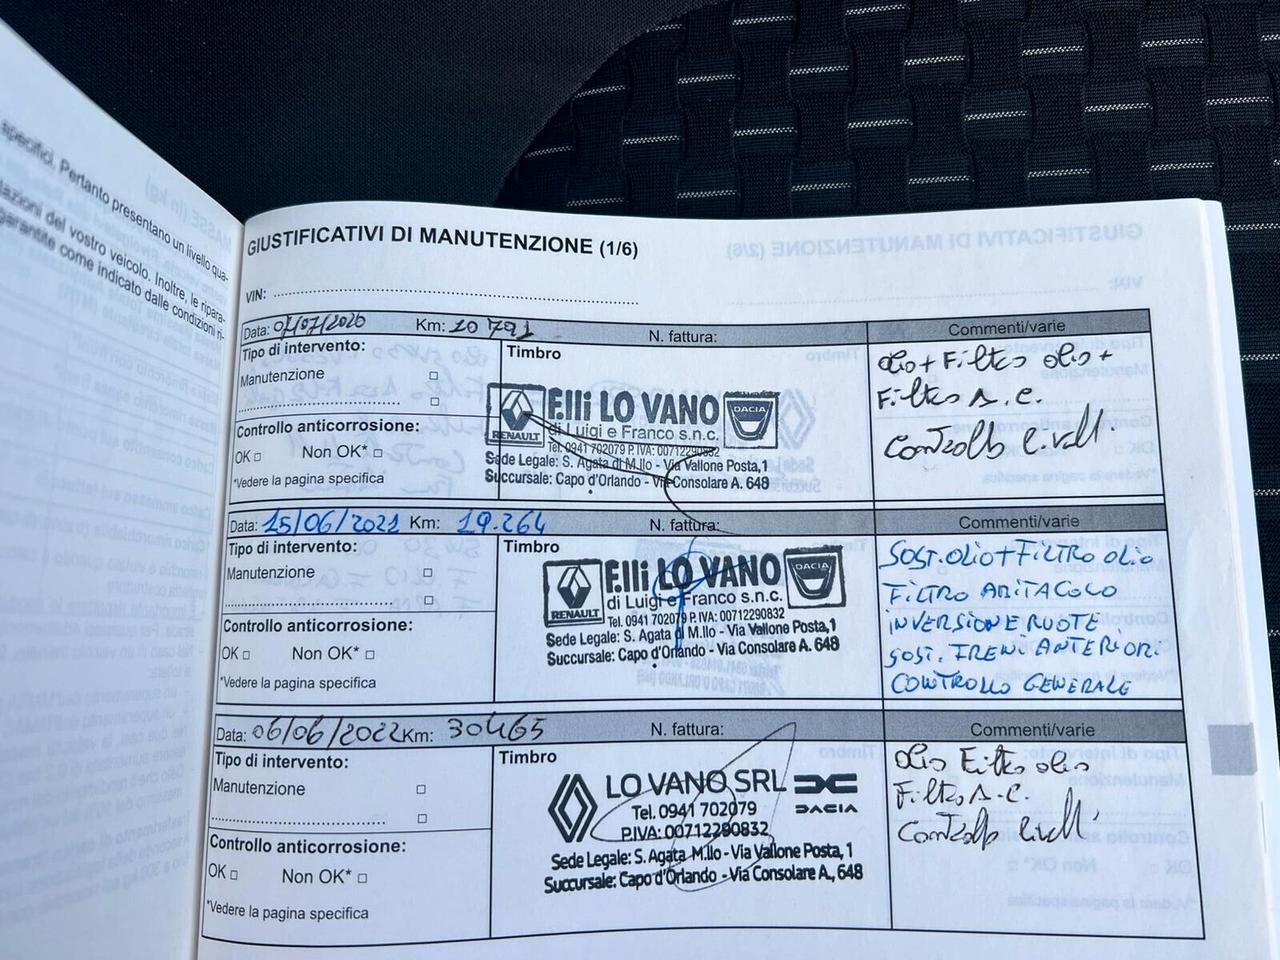 specifici. Pertanto presentano un livello qua-
del vostro veicolo. Inoltre, le ripara-
garantite come indicato dalle condizioni ri-
GIUSTIFICATIVI DI MANUTENZIONE (1/6)
VIN:
Data: 07/07/2020 Km: 10 791 N. fattura: Commenti/varie
Tipo di intervento:
Manutenzione □
□
Controllo anticorrosione:
OK □ Non OK* □
*Vedere la pagina specifica
Timbro
RENAULT
F.lli LO VANO
DACIA
di Luigi e Franco s.n.c.
Tel. 0941 702079 P. IVA: 00712290832
Sede Legale: S. Agata di M.llo - Via Vallone Posta,1
Succursale: Capo d'Orlando - Via Consolare A. 648
olio + Filtro olio +
Filtro A.C.
Controllo livelli
Data: 15/06/2021 Km: 19.264 N. fattura: Commenti/varie
Tipo di intervento:
Manutenzione □
□
Controllo anticorrosione:
OK □ Non OK* □
*Vedere la pagina specifica
Timbro
RENAULT
F.lli LO VANO
DACIA
di Luigi e Franco s.n.c.
Tel. 0941 702079 P. IVA: 00712290832
Sede Legale: S. Agata di M.llo - Via Vallone Posta,1
Succursale: Capo d'Orlando - Via Consolare A. 648
SOST. OLIO + FILTRO OLIO
FILTRO ANITACOLO
INVERSIONE RUOTE
SOST. FRENI ANTERIORI
CONTROLLO GENERALE
Data: 06/06/2022 Km: 30465 N. fattura: Commenti/varie
Tipo di intervento:
Manutenzione □
□
Controllo anticorrosione:
OK □ Non OK* □
*Vedere la pagina specifica
Timbro
LO VANO SRL
DACIA
Tel. 0941 702079
P.IVA: 00712290832
Sede Legale: S. Agata M.llo - Via Vallone Posta, 1
Succursale: Capo d'Orlando - Via Consolare A., 648
olio Filtro olio
Filtro A.C.
Controllo livelli